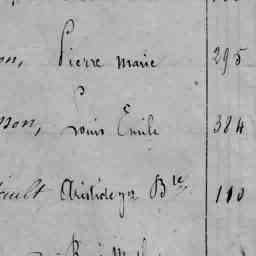 on, Pierre Marie 295
non, Louis Emile 384
ault Aristide Jn Bte 110